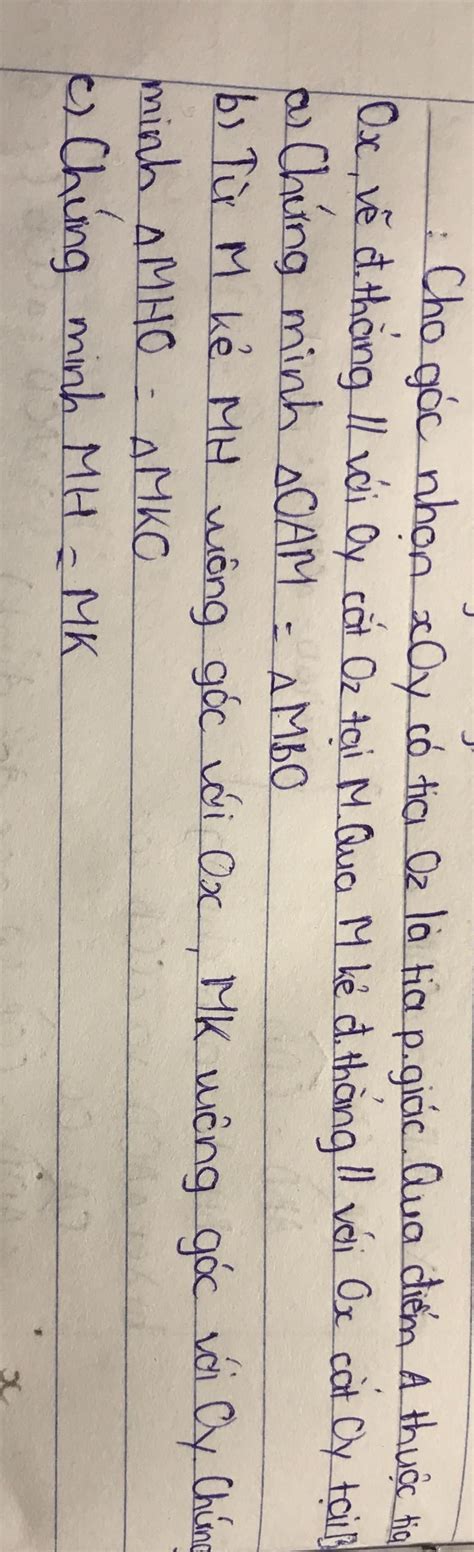 : Cho góc nhọn xOy có tia Oz là tia p.giác. Qua điểm A thuộc tia
Ox, vẽ đ.thẳng // với Oy cắt Oz tại M. Qua M kẻ đ.thẳng // với Ox cắt Oy tại B
a) Chứng minh △OAM = △MBO
b) Từ M kẻ MH vuông góc với Ox, MK vuông góc với Oy Chứng
minh △MHO = △MKO
c) Chứng minh MH = MK
x